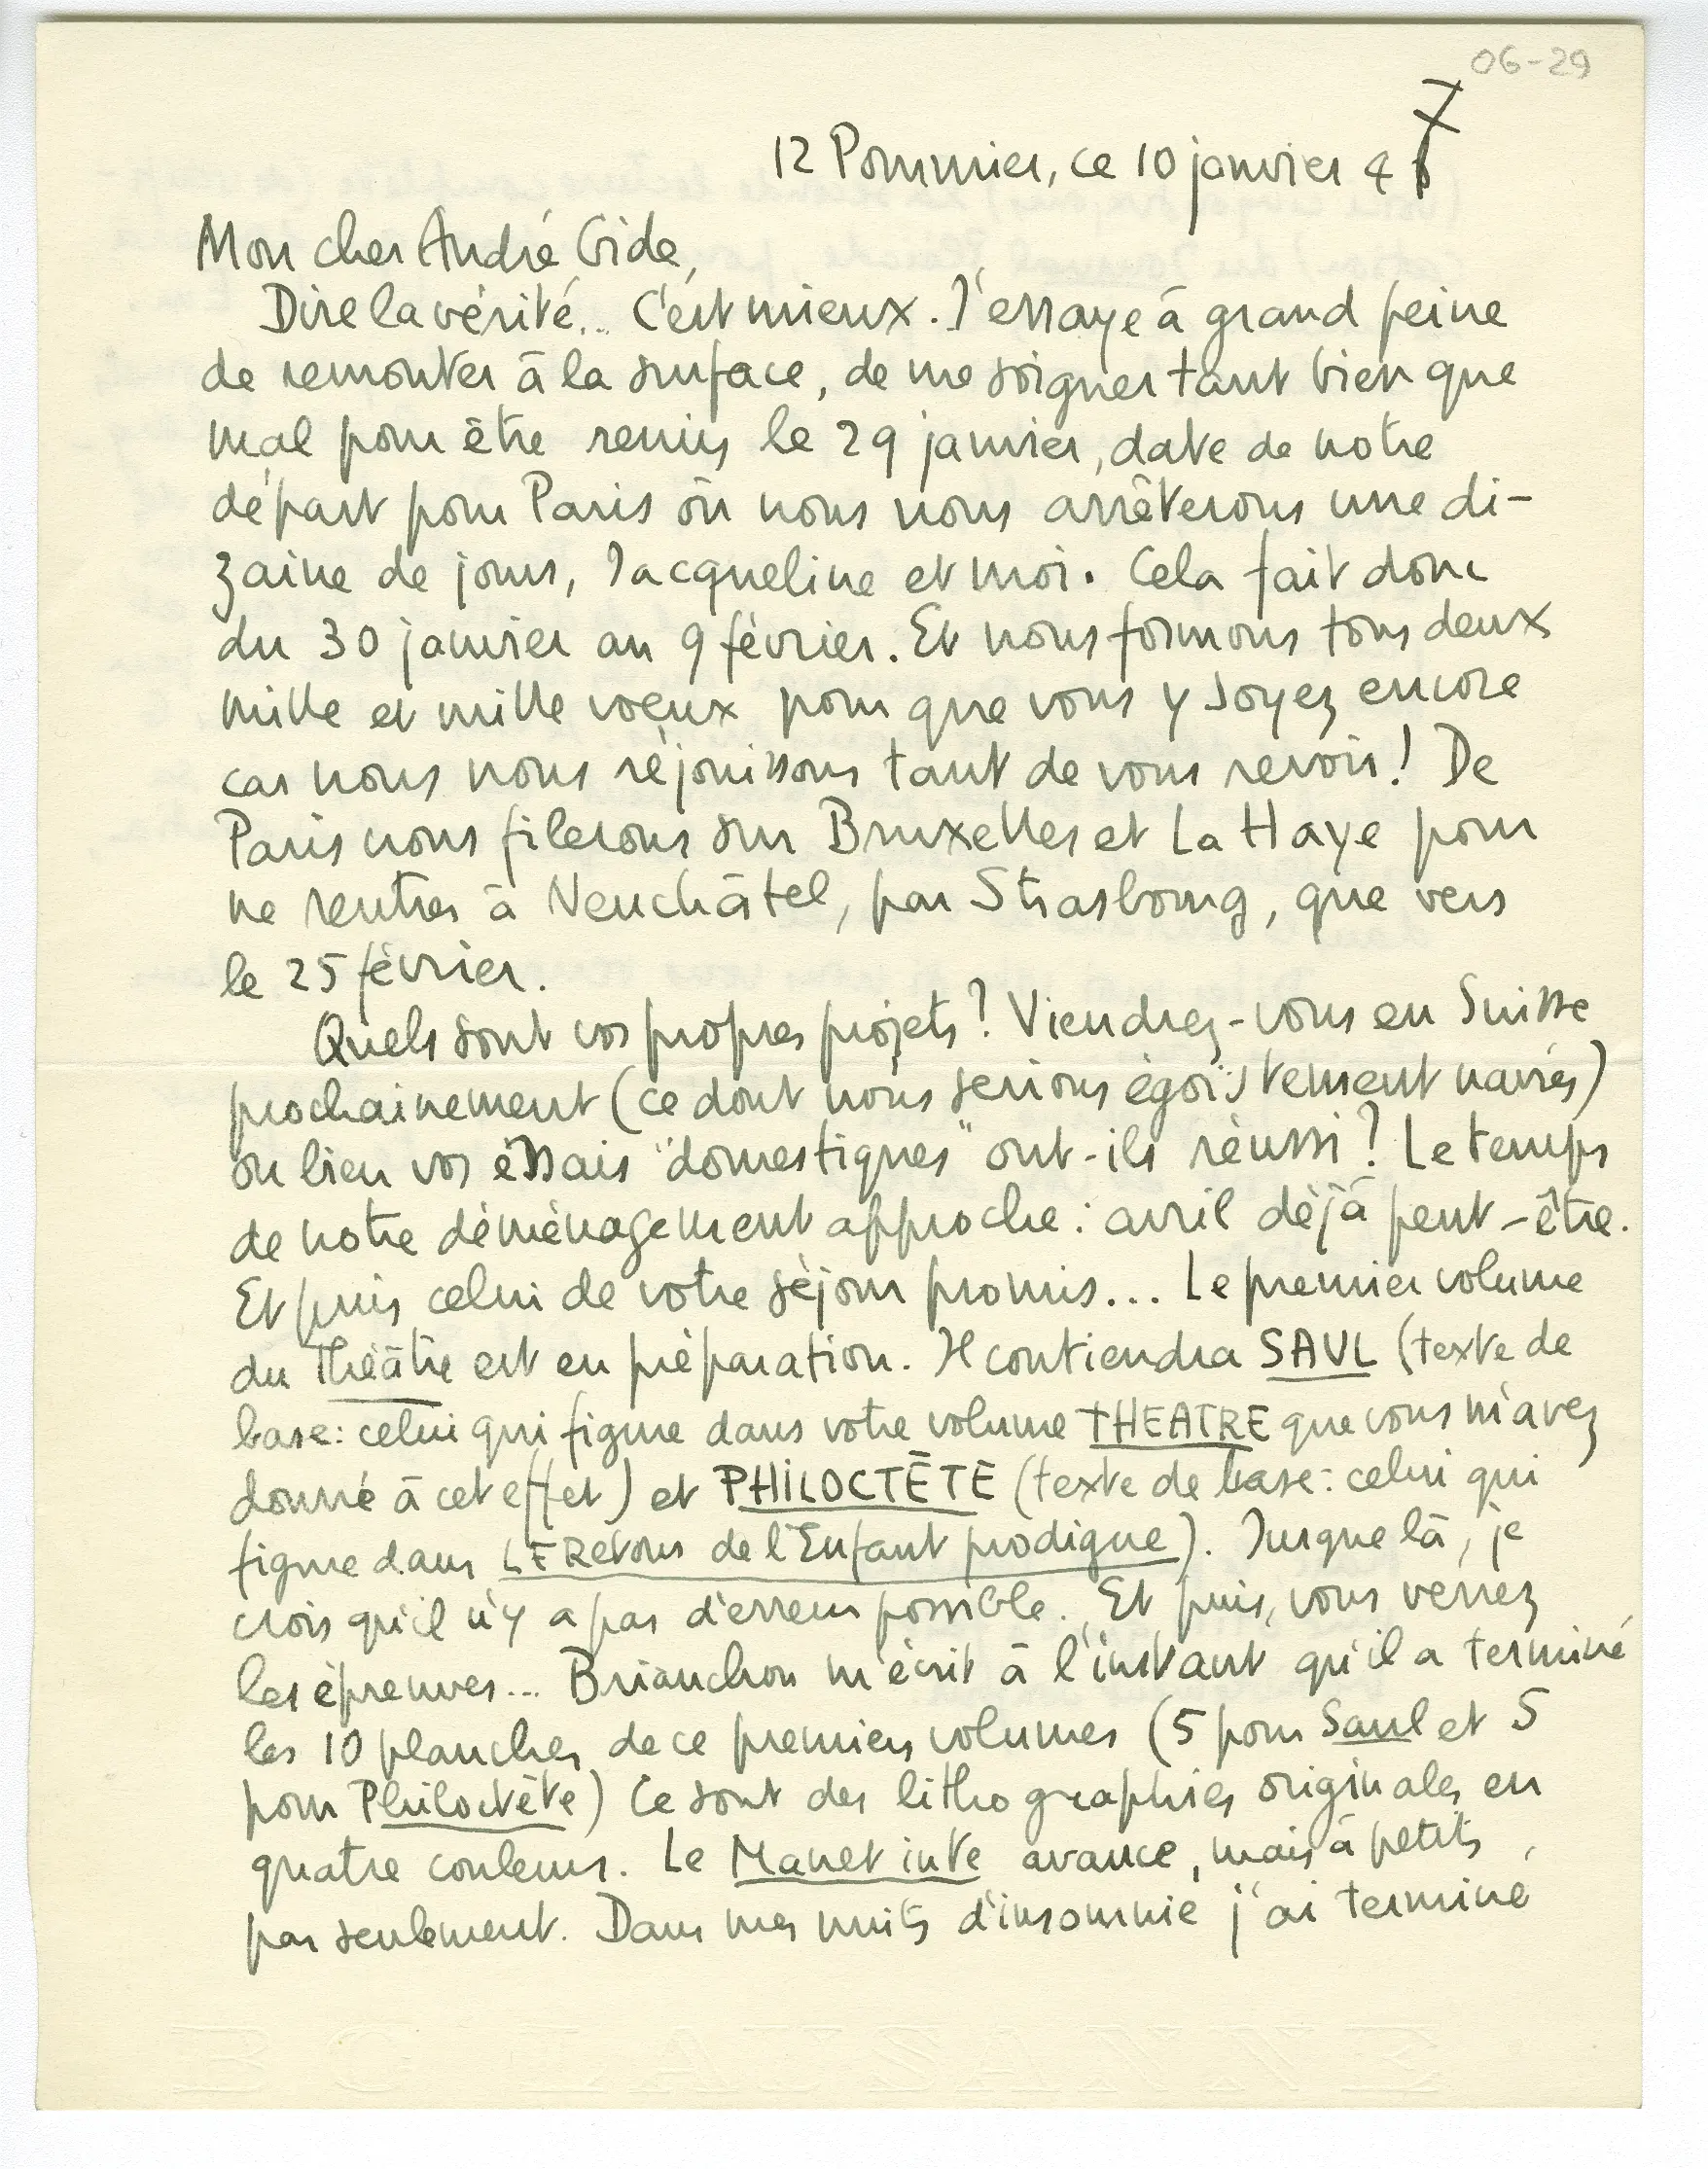 06-29
12 Pommier, ce 10 janvier 47
Mon cher André Gide,
Dire la vérité... C'est mieux. J'essaye à grand peine
de remonter à la surface, de me soigner tant bien que
mal pour être remis le 29 janvier, date de notre
départ pour Paris où nous nous arrêterons une di-
zaine de jours, Jacqueline et moi. Cela fait donc
du 30 janvier au 9 février. Et nous formons tous deux
mille et mille voeux pour que vous y soyez encore
car nous nous réjouissons tant de vous revoir! De
Paris nous filerons sur Bruxelles et La Haye pour
ne rentrer à Neuchâtel, par Strasbourg, que vers
le 25 février.
Quels sont vos propres projets? Viendrez-vous en Suisse
prochainement (ce dont nous serions égoïstement navrés)
ou bien vos essais "domestiques" ont-ils réussi? Le temps
de notre déménagement approche: avril déjà peut-être.
Et puis celui de votre séjour promis... Le premier volume
du Théâtre est en préparation. Il contiendra SAUL (texte de
base: celui qui figure dans votre volume THEATRE que vous m'avez
donné à cet effet) et PHILOCTÈTE (texte de base: celui qui
figure dans LE Retour de l'Enfant prodigue). Jusque là, je
crois qu'il n'y a pas d'erreur possible. Et puis, vous verrez
les épreuves... Brianchon m'écrit à l'instant qu'il a terminé
les 10 planches de ce premiers volumes (5 pour Saul et 5
pour Philoctète) Ce sont des lithographies originales en
quatre couleurs. Le Manet inte avance, mais à petits
pas seulement. Dans mes nuits d'insomnie j'ai terminé